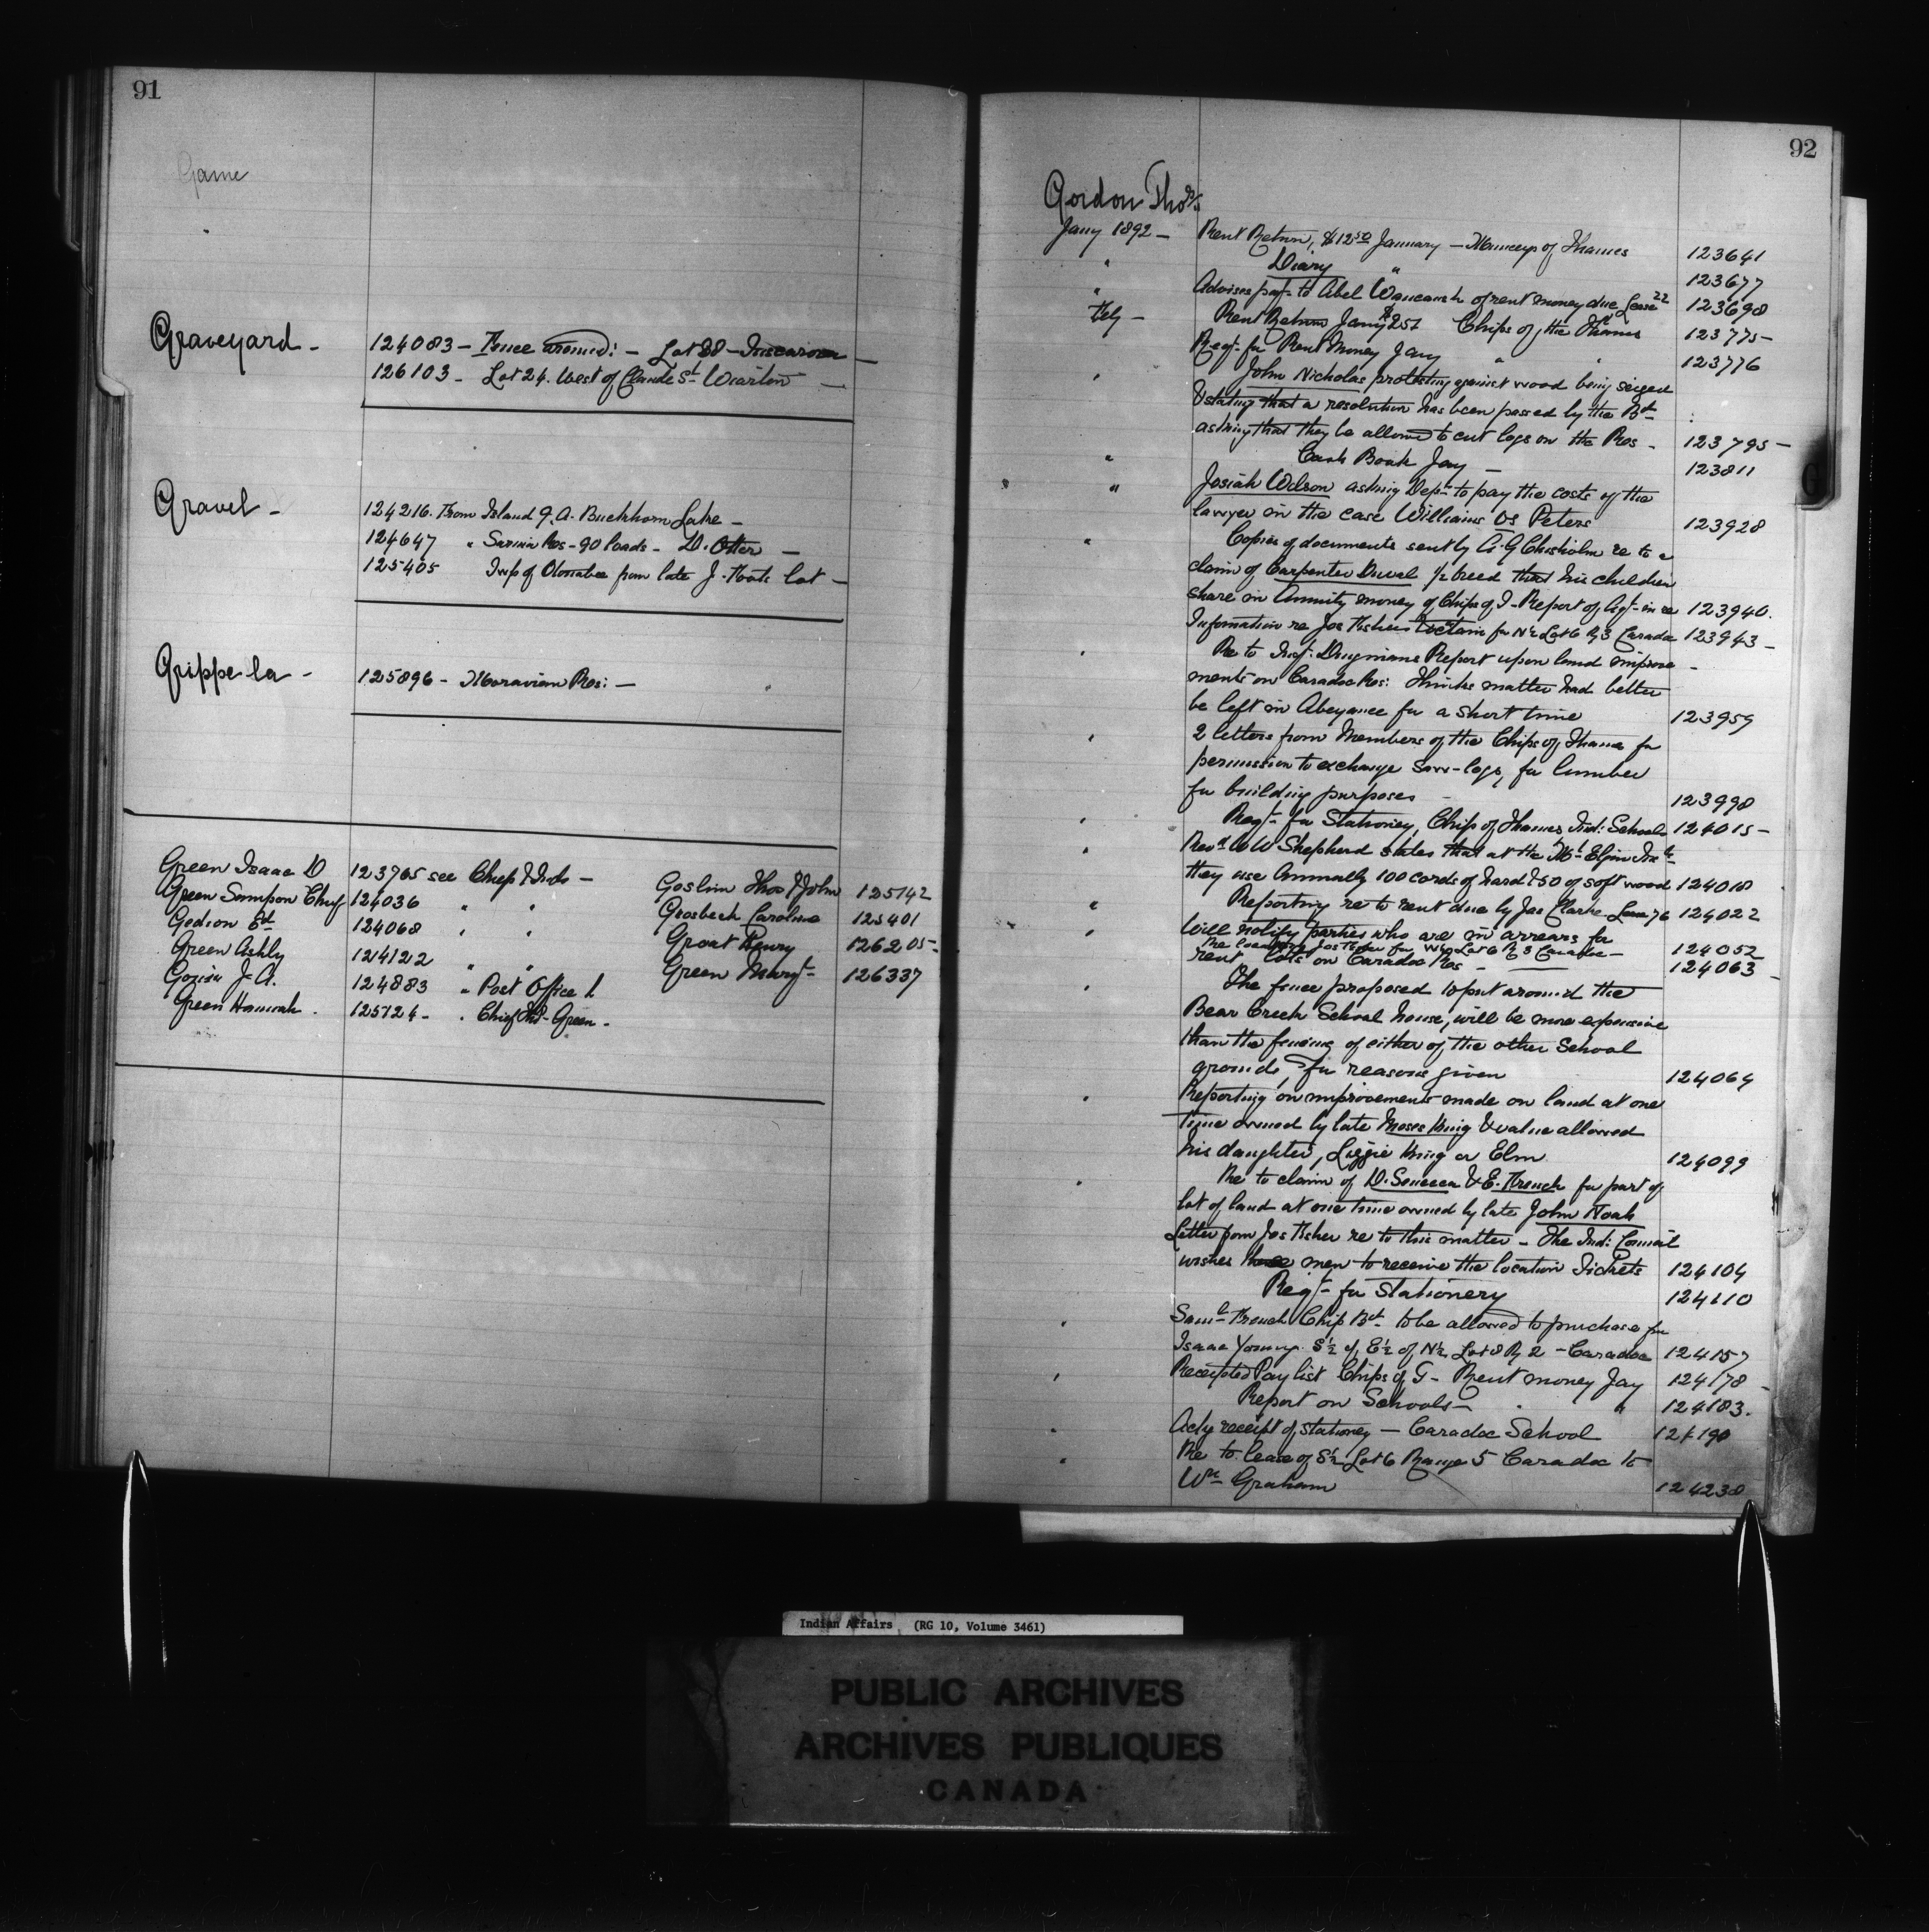 91
Game
Graveyard -
124083 - Fence around: - Lot 38 -
126103 - Lot 24. West of Claude St Wiarton -
Gravel -
124216. From Island 9. A. Buckhorn Lake -
124647 " Sarnia Res - 90 loads - D. Otter -
125405 Twp of Otonabee from late J. lot -
Grippe la -
125896 - Moravian Res: -
Green Isaac D 123765 see Chiep & Inds -
Green Sampson Chief 124036 " "
Gedion Ed 124068 " "
Green Ashly 124122 " "
J. A. 124883 " Post Office
Green Hannah. 125724 - " Chief Green -
Goslin Thos & John 125742
Grosbeck Caroline 125401
Groat Henry 126205 -
Green Margt 126337
92
Gordon Thos
Jany 1892 - Rent Return, $12.50 January - Munceys of Thames 123641
" Diary " 123677
" Advises payt to Abel Waucaush of rent money due Lease 22 123698
Feby - Rent Return Jany Chips of the Thames 123775 -
Reqt for Rent Money Jany " " 123776
" John Nicholas protesting against wood being seized
& stating that a resolution has been passed by the Bd
asking that they be allowed to cut logs on the Res - 123795 -
" Cash Book Jay - 123811
" Josiah Wilson asking Dept to pay the costs of the
lawyer in the case Williams vs Peters 123928
" Copies of documents sent by A. G Chisholm re to a
claim of Carpenter Duval 1/2 breed that his children
share in Annuity money of Chips of T - Report of Agt in re 123940.
Information re Jos Fishers claim for N½ Lot 6 R 3 Caradoc 123943 -
" Re to Insp: Dingmans Report upon land improve -
ments on Caradoc Res: Thinks matter had better
be left in Abeyance for a short time 123959
" 2 letters from Members of the Chips of Thames for
permission to exchange saw-logs, for lumber
for building purposes - 123998
" Reqt for Stationery, Chips of Thames Ind: Schools 124015 -
" Revd W W Shepherd states that at the Mt Elgin Inst
they use Annually 100 cords of hard & 50 of soft wood 124018
" Reporting re to rent due by Jas Clarke Lease 76 124022
" Will notify parties who are in arrears for
Re location Jos Fisher for W½ Lot 6 R 3 Caradoc - 124052
rent lots on Caradoc Res - 124063 -
" The fence proposed to put around the
Bear Creek School house, will be more expensive
than the fencing of either of the other School
grounds, for reasons given 124064
" Reporting on improvements made on land at one
time owned by late Moses King & value allowed
his daughter, Lizzie King or Elm 124099
" Re to claim of D. Seneca & E. French for part of
lot of land at one time owned by late John Noah
Letter from Jos Fisher re to this matter - The Ind: Council
wishes these men to receive the location Tickets 124104
Reqt - for Stationery 124110
" Saml French Chip Bd - to be allowed to purchase for
Isaac Young S½ of E½ of N½ Lot 8 R 2 - Caradoc 124157
" Receipted Pay list Chips of T - Rent money Jay 124178 -
Report on Schools - " " 124183.
" Ackg receipt of stationery - Caradoc School 124190
" Re to lease of S½ Lot 6 Range 5 Caradoc to
Wm Graham 124238
Indian Affairs (RG 10, Volume 3461)
PUBLIC ARCHIVES
ARCHIVES PUBLIQUES
CANADA